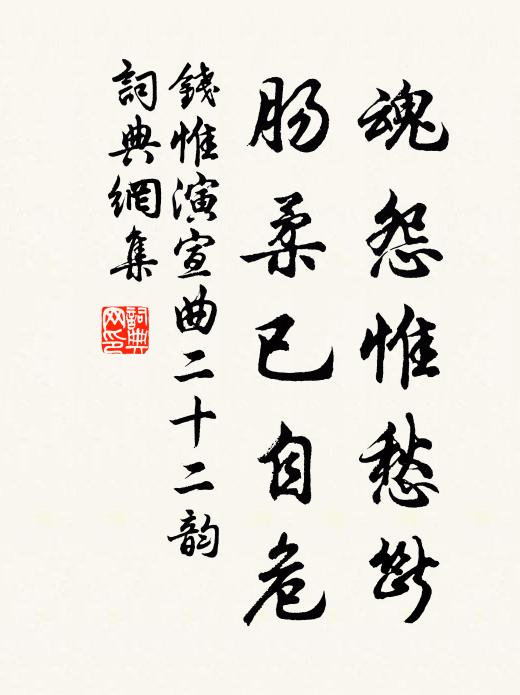 魂怨惟愁斷
肠柔已自危
錢惟演宣曲二十二韵
詞典網集
詞典网印